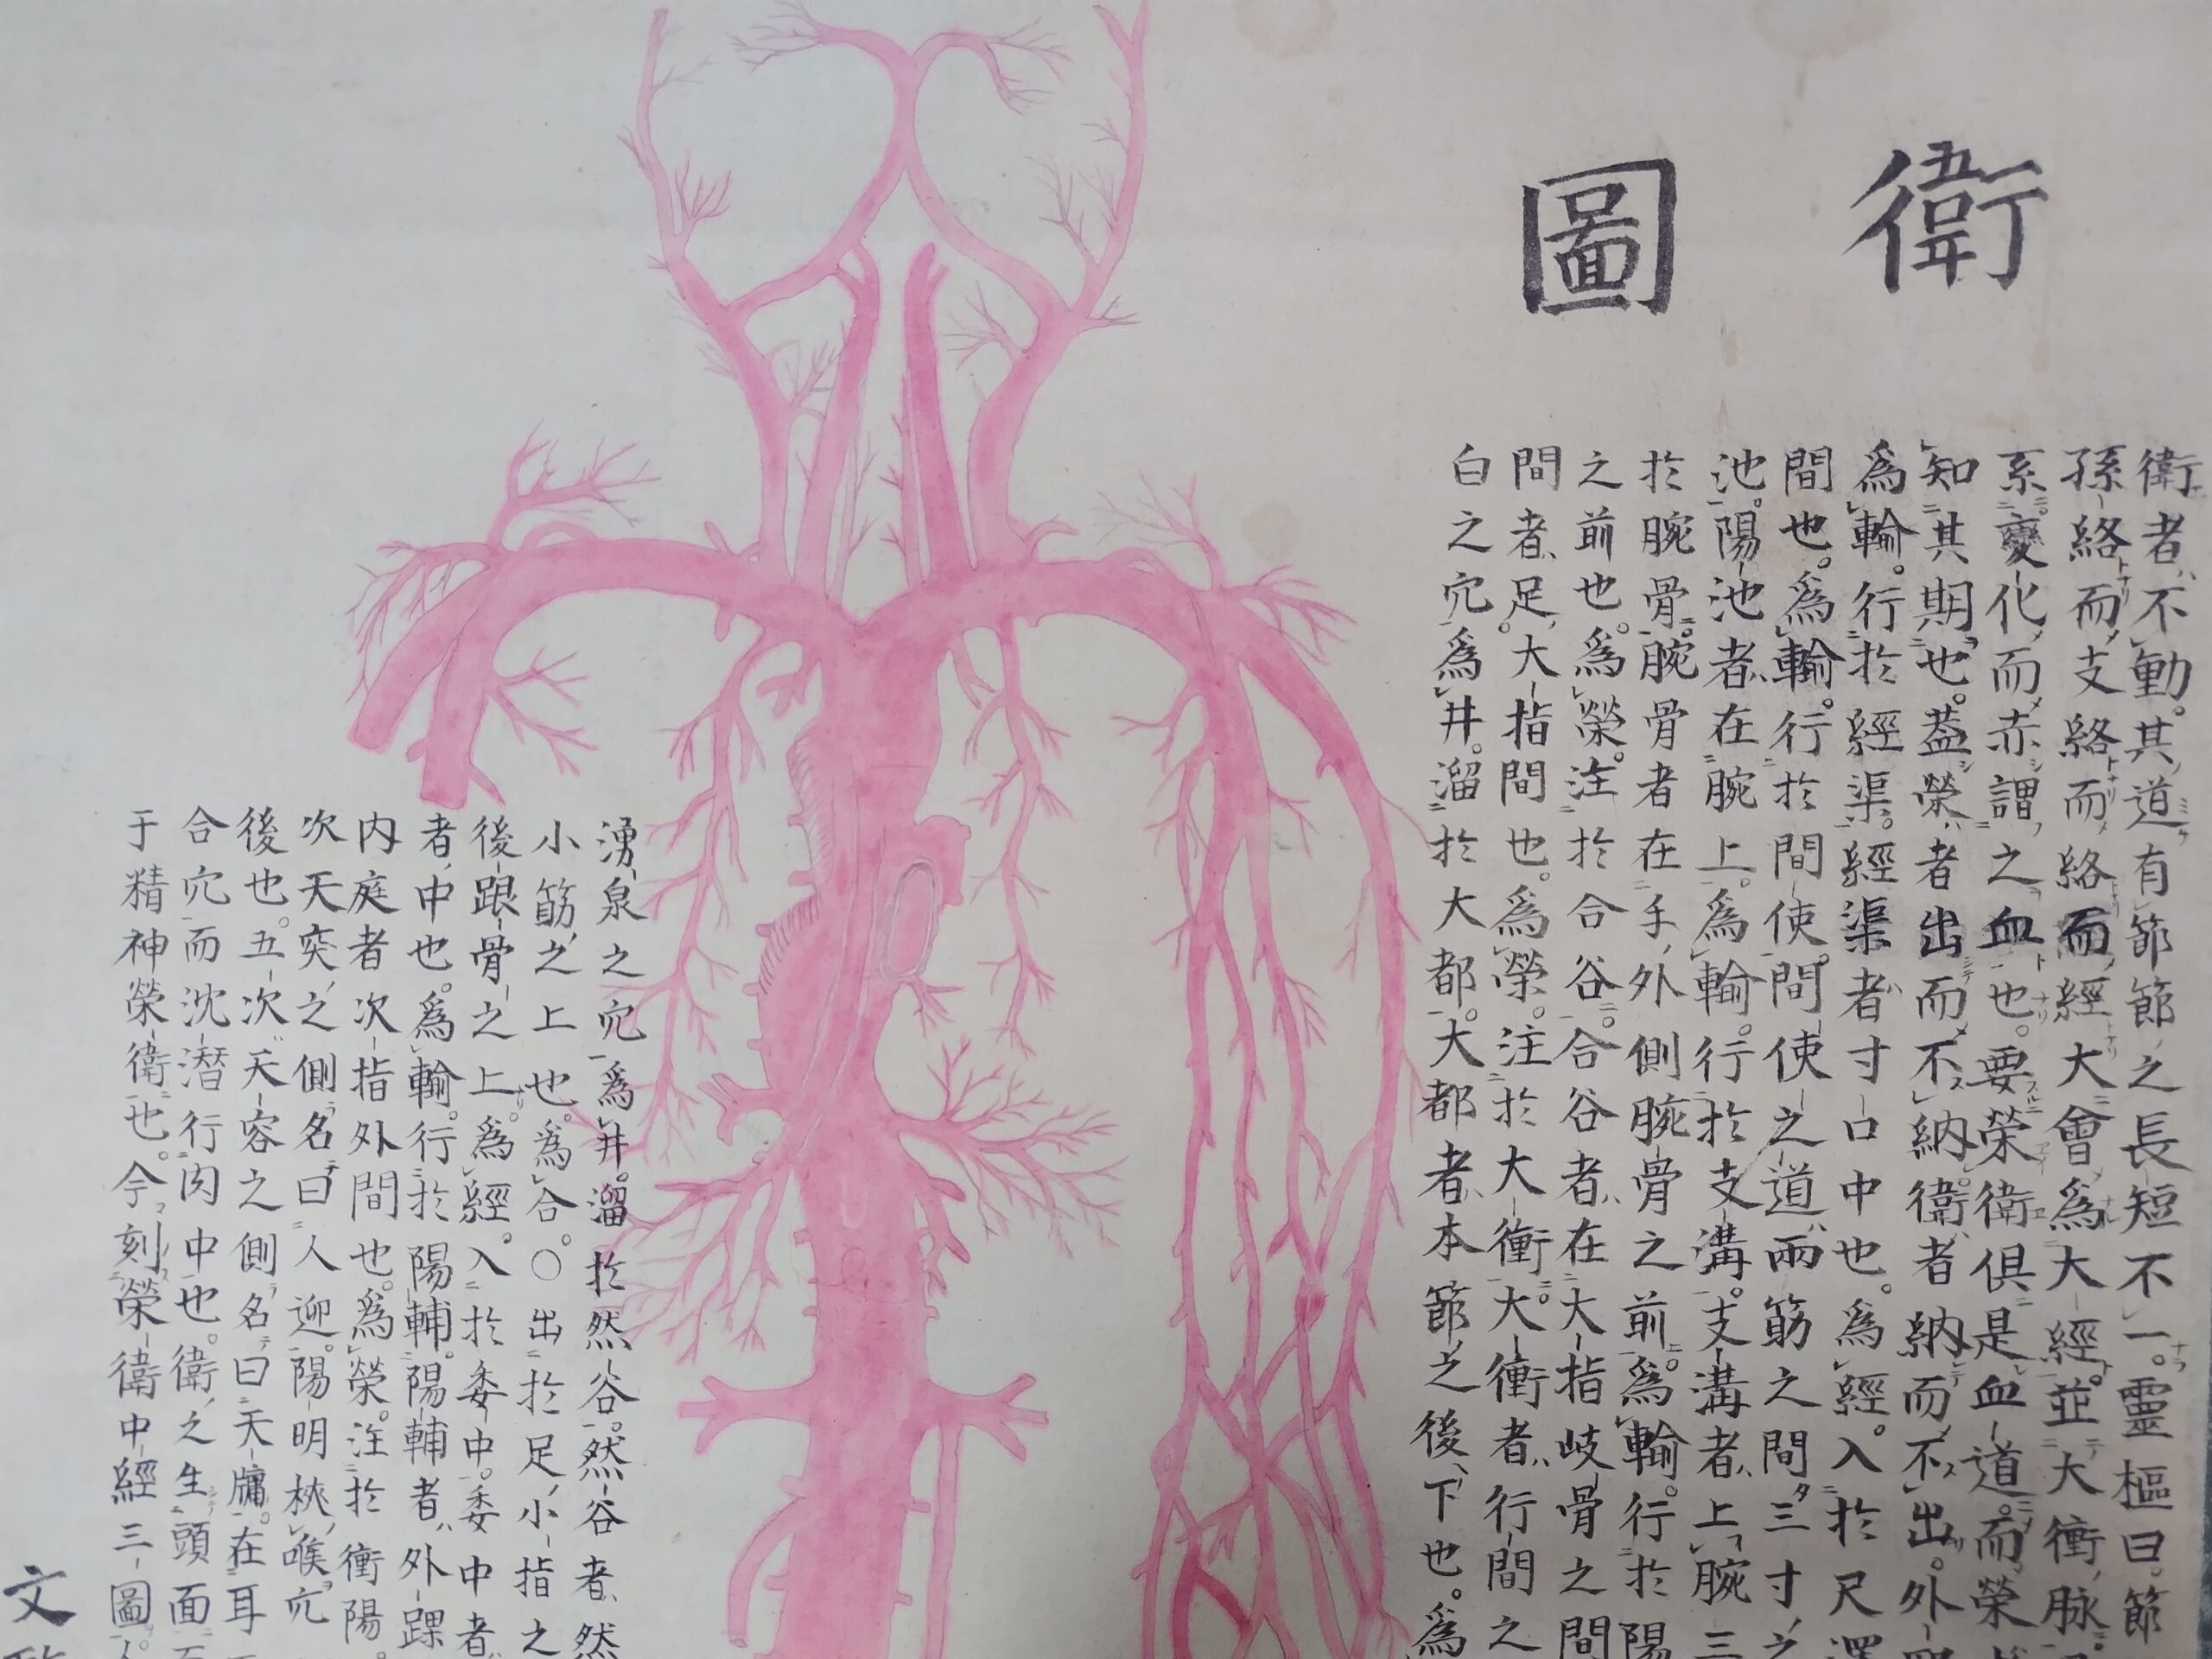 衛圖
衛者不動其道有節節之長短不一靈樞曰節
孫絡而支絡而絡而經大會為大經並大衝脉
系變化而赤謂之血也要榮衛俱是血道而榮
知其期也蓋榮者出而不納衛者納而不出外
為輪行於經渠經渠者寸口中也為經入於尺澤
間也為輪行於間使間使之道兩筋之間三寸之
池陽池者在腕上為輪行於支溝支溝者上腕三
於腕骨腕骨者在手外側腕骨之前為輪行於陽
之前也為榮注於合谷合谷者在大指岐骨之間
間者足大指間也為榮注於大衝大衝者行間之
白之穴為井溜於大都大都者本節之後下也為
湧泉之穴為井溜於然谷然谷者然
小筋之上也為合〇出於足小指之
後跟骨之上為經入於委中委中者
者中也為輪行於陽輔陽輔者外踝
內庭者次指外間也為榮注於衝陽
次天突之側名曰人迎陽明挾喉
後也五次天容之側名曰天牖在耳
合穴而沈潛行肉中也衛之生頭面
于精神榮衛也今刻榮衛中經三圖
文